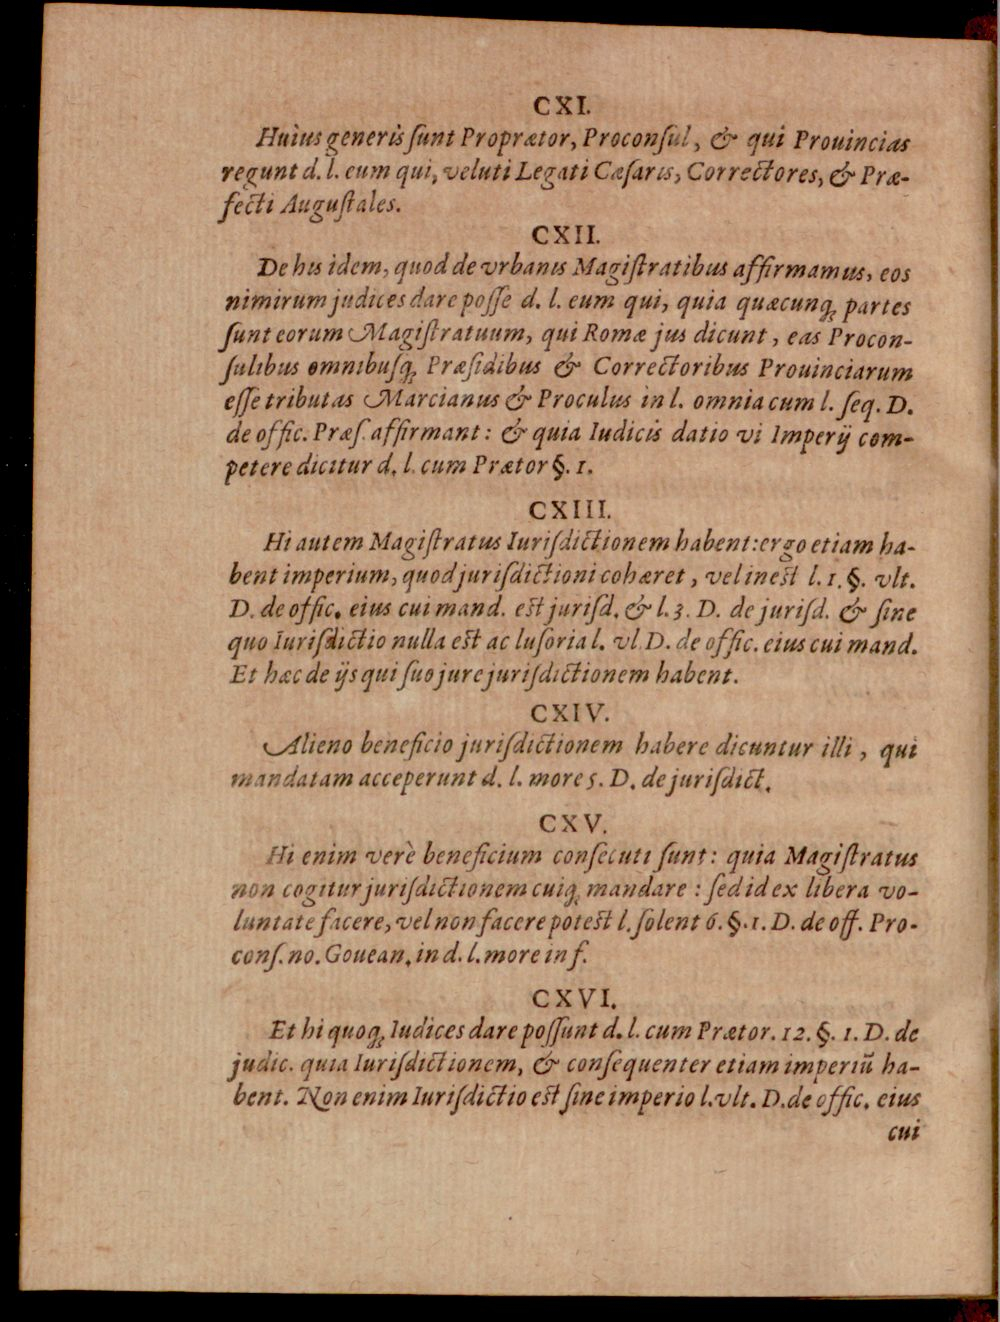 CXI.
Huius generis ſunt Proprætor, Proconſul, & qui Prouincias
regunt d. l. eum qui, veluti Legati Cæſaris, Correctores, & Præ-
fecti Auguſtales.
CXII.
De his idem, quod de vrbanis Magiſtratibus affirmamus, eos
nimirum judices dare poſſe d. l. eum qui, quia quæcunq; partes
ſunt eorum Magiſtratuum, qui Romæ jus dicunt, eas Procon-
ſulibus omnibuſq; Præſidibus & Correctoribus Prouinciarum
eſſe tributas Marcianus & Proculus in l. omnia cum l. ſeq. D.
de offic. Præſ. affirmant: & quia Iudicis datio vi Imperij com-
petere dicitur d. l. cum Prætor §. 1.
CXIII.
Hi autem Magiſtratus Iuriſdictionem habent: ergo etiam ha-
bent imperium, quod juriſdictioni cohæret, vel ineſt l. 1. §. vlt.
D. de offic. eius cui mand. eſt juriſd. & l. 3. D. de juriſd. & ſine
quo Iuriſdictio nulla eſt ac luſoria l. vl. D. de offic. eius cui mand.
Et hæc de ijs qui ſuo jure juriſdictionem habent.
CXIV.
Alieno beneficio juriſdictionem habere dicuntur illi, qui
mandatam acceperunt d. l. more 5. D. de juriſdict.
CXV.
Hi enim verè beneficium conſecuti ſunt: quia Magiſtratus
non cogitur juriſdictionem cuiq; mandare: ſed id ex libera vo-
luntate facere, vel non facere poteſt l. ſolent 6. §. 1. D. de off. Pro-
conſ. no. Gouean. in d. l. more in f.
CXVI.
Et hi quoq; Iudices dare poſſunt d. l. cum Prætor. 12. §. 1. D. de
judic. quia Iuriſdictionem, & conſequenter etiam imperiũ ha-
bent. Non enim Iuriſdictio eſt ſine imperio l. vlt. D. de offic. eius
cui